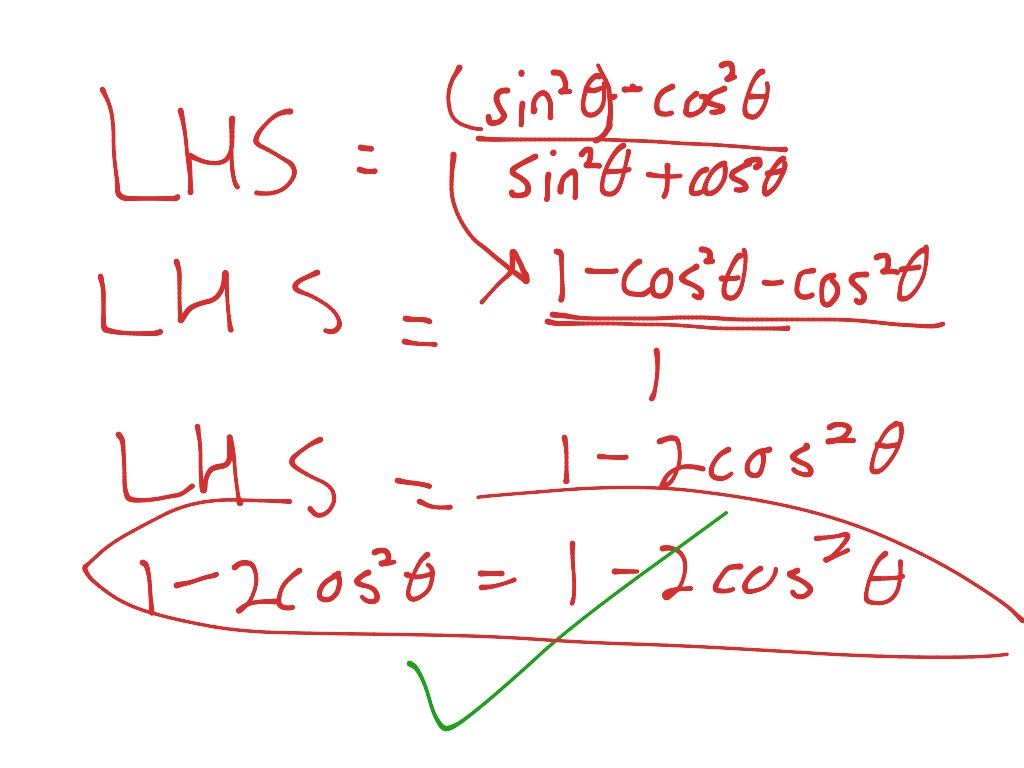 LHS = (sin²θ) - cos²θ
sin²θ + cos²θ
LHS = 1 - cos²θ - cos²θ
1
LHS = 1 - 2cos²θ
1 - 2cos²θ = 1 - 2cos²θ